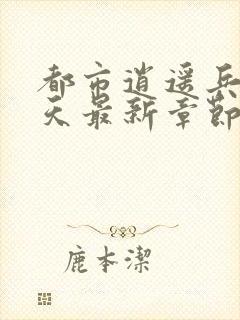 都市逍遥兵
天最新章節
鹿本潔